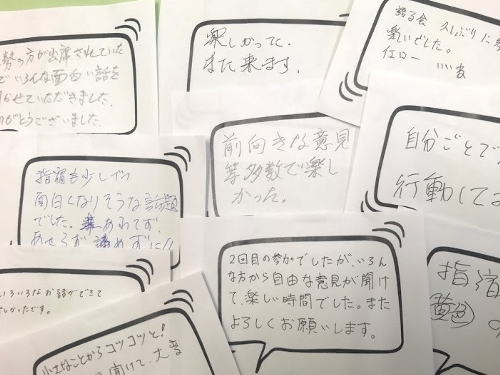 勢の方が出席されていた
でいろんな面白い話を
かせていただきました。
がとうございました。
楽しかったて、
また来ます。
語る会 久しぶりに参
楽いでした。
イエロー
前向きな意見
等多数で楽し
かった。
自分ごとで
行動して
指宿も少しずつ
面白くなりそうな話題
でした。
あせらず諦めずに!!
2回目の参加でしたが、いろん
な方から自由な意見が聞け
て、楽しい時間でした。また
よろしくお願いします。
いろいろなお話ができて
しかったです。
小さなことからコツコツと!
聞けて、大
指宿